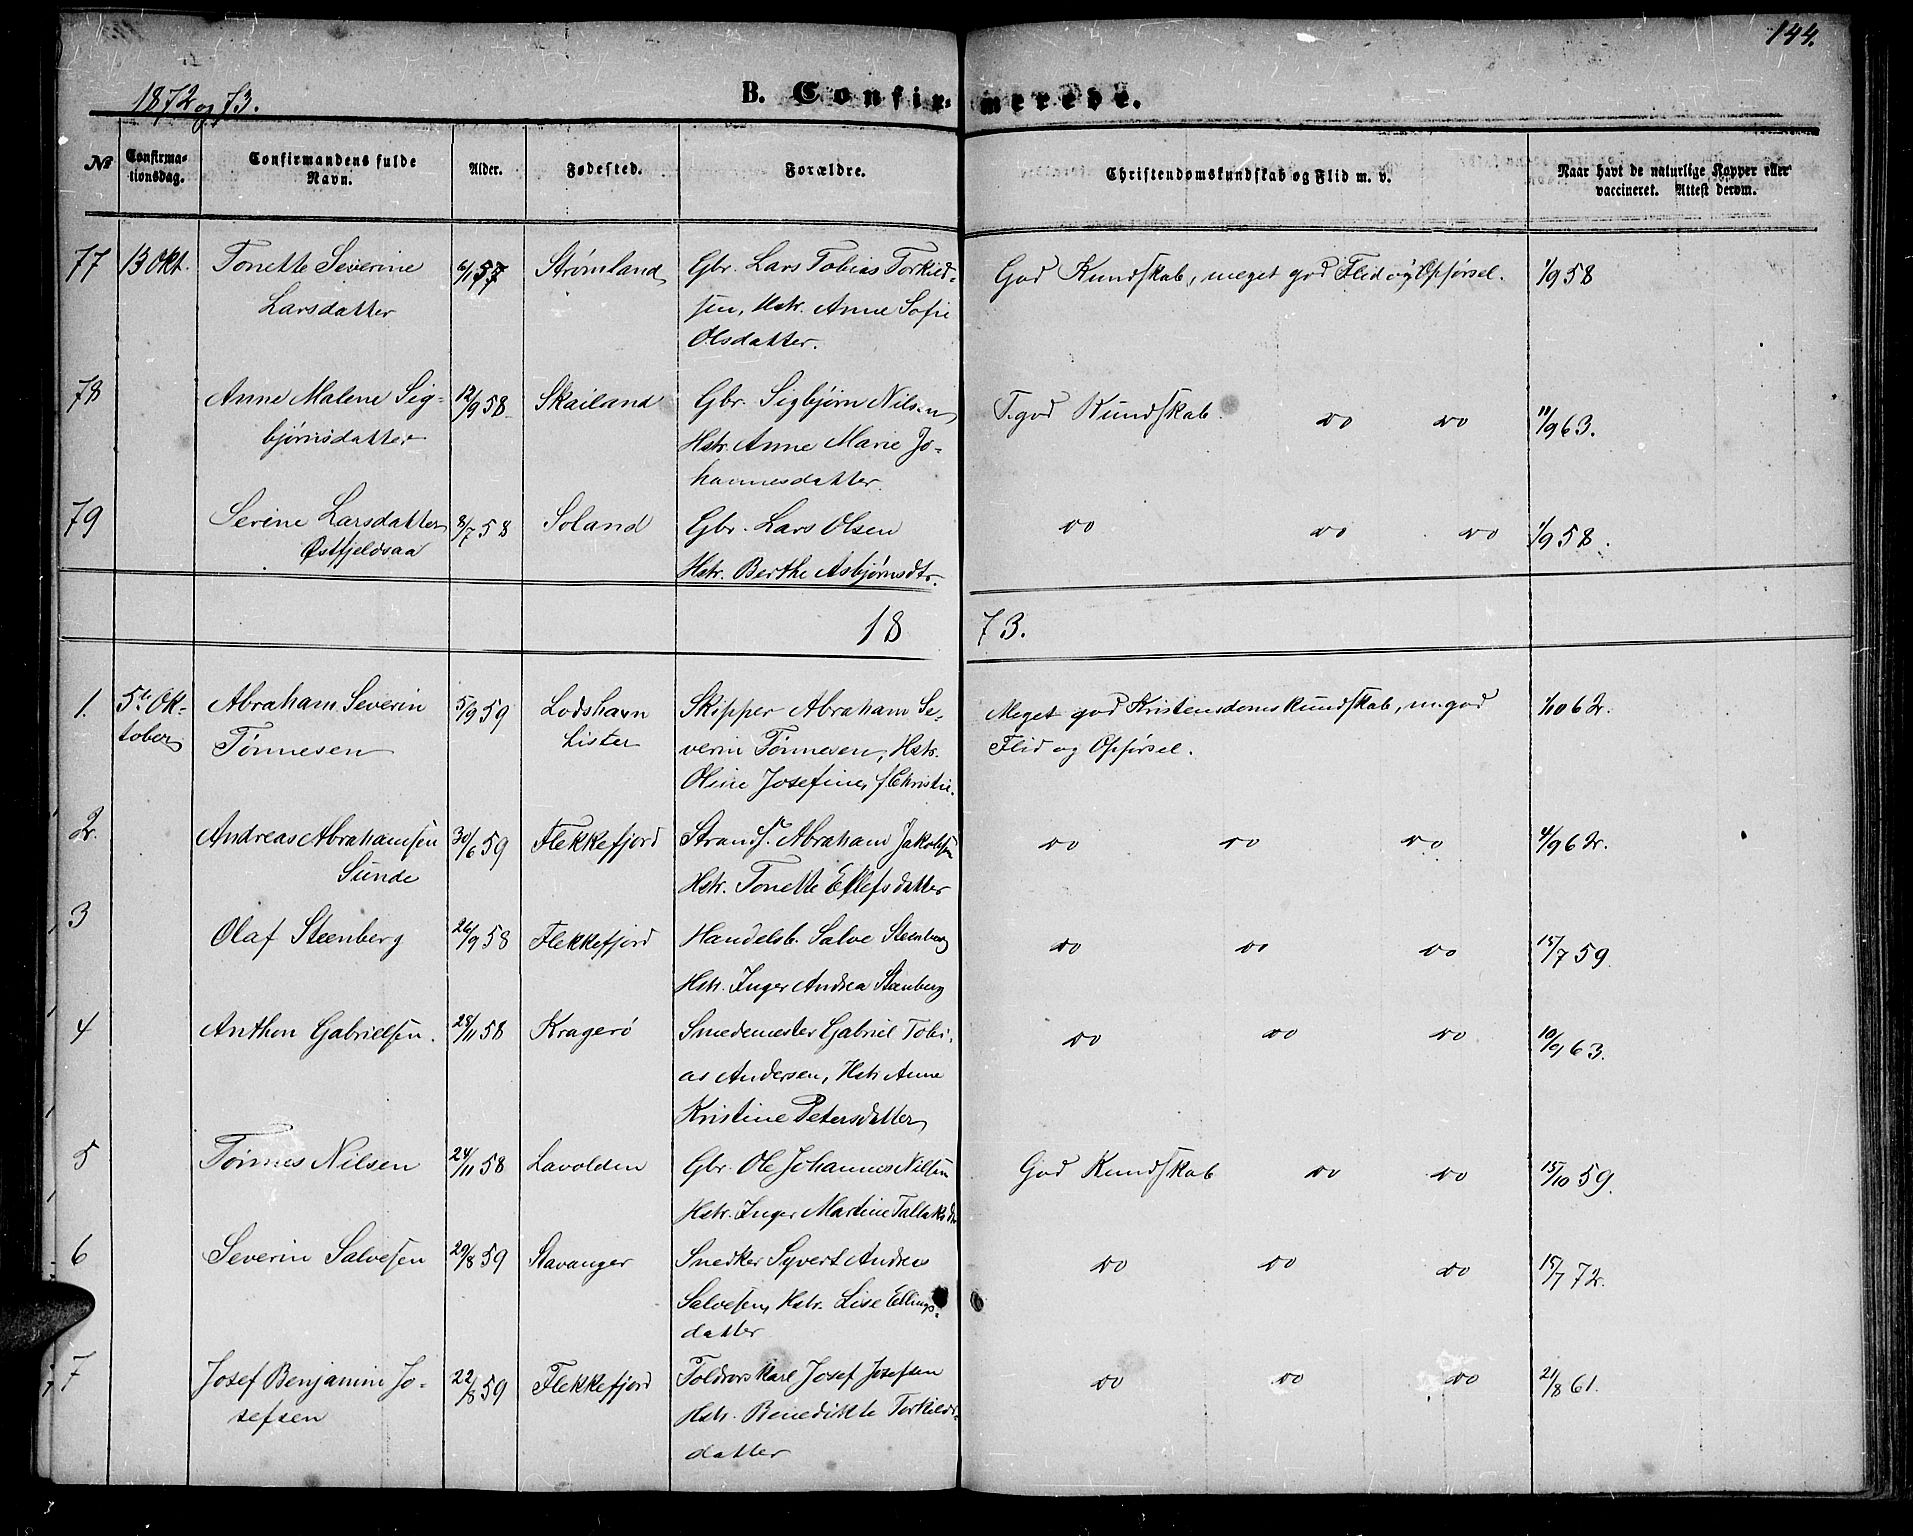 144.
1872 og 73.
B. Confirmerede.
No
Confirmationsdag.
Confirmandens fulde Navn.
Alder.
Fødested.
Forældre.
Christendomskundskab og Flid m. v.
Naar havt de naturlige Kopper eller vaccineret. Attest derom.
77 13 Okt. Tonette Severine 6/1 57 Strømland Gbr. Lars Tobias Torkild- God Kundskab, meget god Flid og Opførsel. 1/9 58
Larsdatter sen, Hstr. Anne Sofie
Olsdatter.
78 Anne Malene Sig- 12/9 58 Skailand Gbr. Sigbjørn Nilsen T. god Kundskab. do do 11/9 63.
bjørnsdatter Hstr. Anne Marie Jo-
hannesdatter.
79 Serine Larsdatter 8/7 58 Soland Gbr. Lars Olsen do do do 1/9 58.
Østfjeldsaa Hstr. Berthe Asbjørnsdtr.
1873.
1. 5te Ok- Abraham Severin 5/9 59 Lodshavn Skipper Abraham Se- Meget god Kristendomskundskab, m. god 1/10 62.
tober Tønnesen Lister verin Tønnesen, Hstr. Flid og Opførsel.
Oline Josefine, f. Christie.
2. Andreas Abrahamsen 30/6 59 Flekkefjord Strands. Abraham Jakobsen do do do 4/9 62.
Sunde Hstr. Tonette Ellefsdatter
3 Olaf Steenberg 26/9 58 Flekkefjord Handelsb. Salve Steenberg do do do 15/7 59.
Hstr. Inger Andrea Steenberg
4 Anthon Gabrielsen. 28/11 58 Kragerø Smedemester Gabriel Tobi- do do do 10/9 63.
as Andersen, Hstr Anne
Kristine Petersdatter
5 Tønnes Nilsen 24/11 58 Lavolden Gbr. Ole Johannes Nilsen God Kundskab do do 15/10 59.
Hstr. Inger Martine Tallaksd.
6 Severin Salvesen 29/8 59 Stavanger Snedker Syvert Andreas do do do 15/7 72.
Salvesen, Hstr. Lise Ellings-
datter
7 Josef Benjamin Jo- 22/8 59 Flekkefjord Toldrorskarl Josef Josefsen do do do 21/8 61.
sefsen Hstr. Benedikte Torkilds-
datter